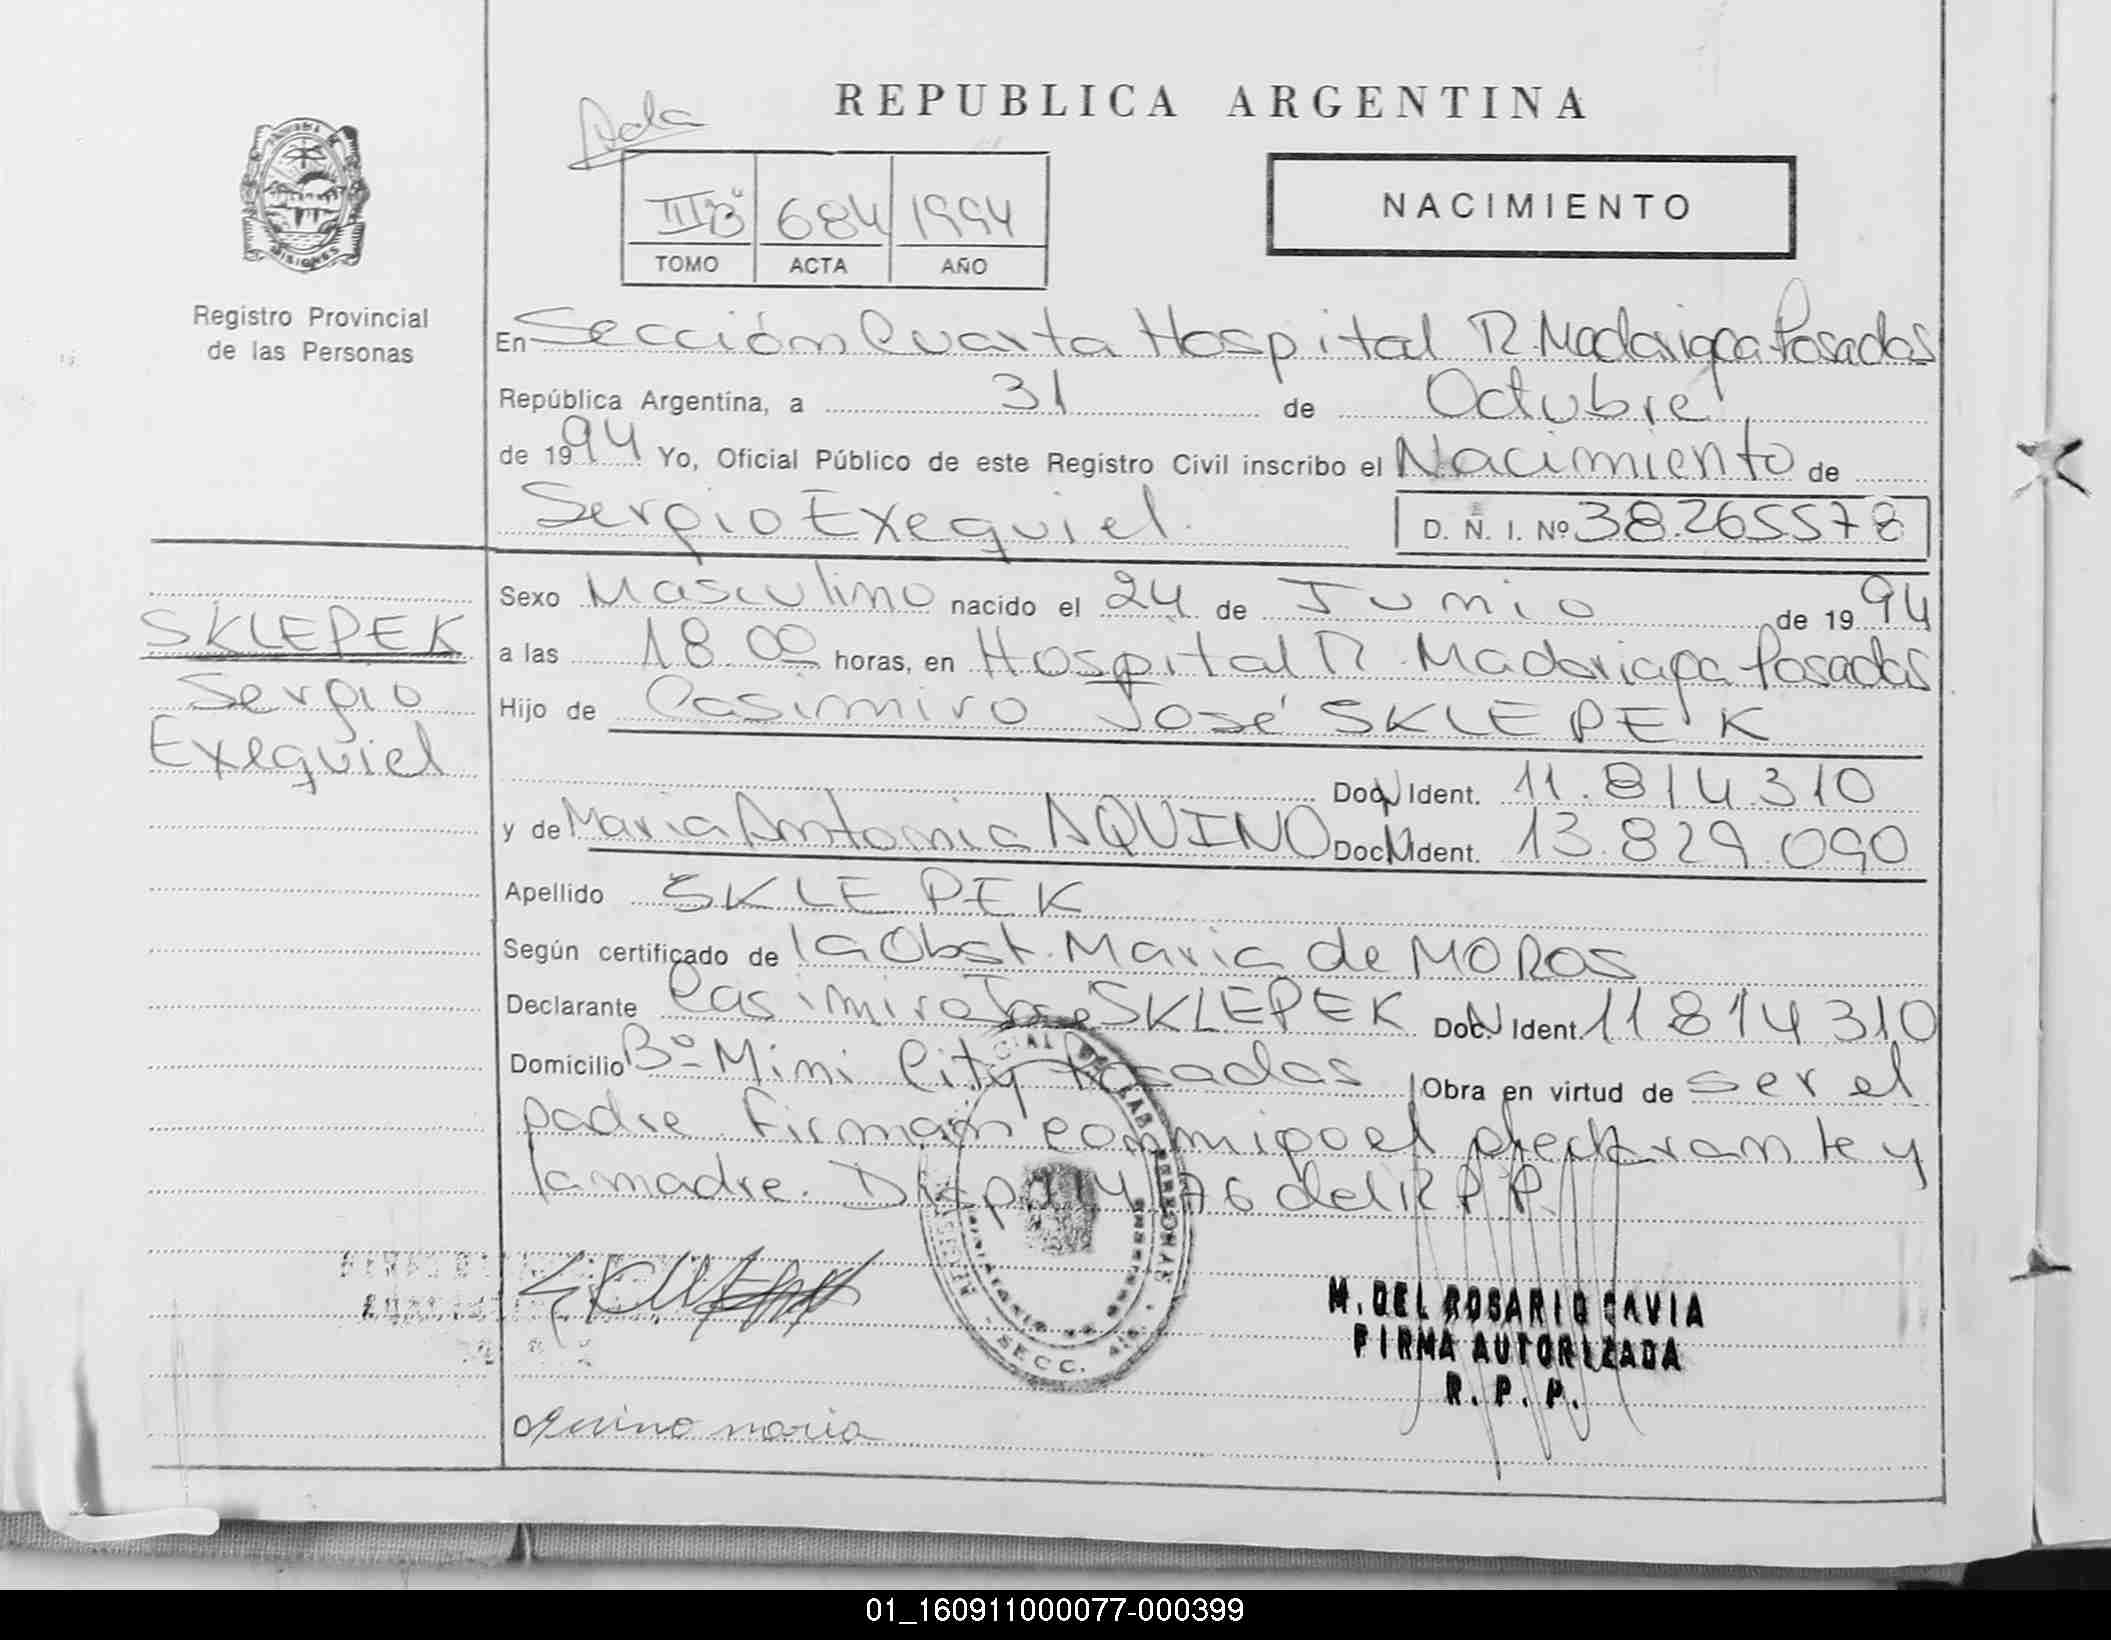 REPUBLICA ARGENTINA
Ada
IIIº"B" 684 1994
TOMO ACTA AÑO
NACIMIENTO
PROVINCIA DE
MISIONES
Registro Provincial
de las Personas
En Sección Cuarta Hospital R. Madariaga Posadas
República Argentina, a 31 de Octubre
de 1994 Yo, Oficial Público de este Registro Civil inscribo el Nacimiento de
Sergio Exequiel D. N. I. Nº 38.265578
SKLEPEK
Sergio
Exequiel
Sexo Masculino nacido el 24 de Junio de 1994
a las 18 00 horas, en Hospital R. Madariaga Posadas
Hijo de Casimiro José SKLEPEK
DocN Ident. 11.814.310
y de Maria Antonia AQUINO DocN Ident. 13.829.090
Apellido SKLEPEK
Según certificado de la Obst. Maria de MOROS
Declarante Casimiro Jose SKLEPEK Doc.N Ident. 11814310
Domicilio Bº Mini City Posadas Obra en virtud de ser el
padre. Firman conmigo el declarante y
la madre. Disp. 114/76 del R.P.P.
SECC. 4ta.
M. DEL ROSARIO GAVIA
FIRMA AUTORIZADA
R. P. P.
Aquino maria
01_160911000077-000399